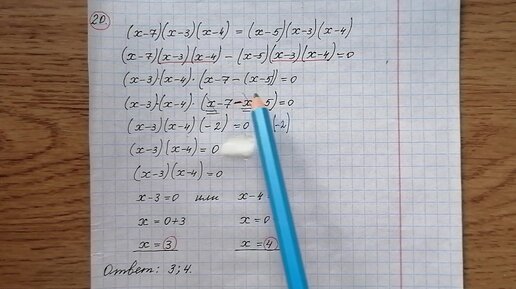 20.
(x-7)(x-3)(x-4) = (x-5)(x-3)(x-4)
(x-7)(x-3)(x-4) - (x-5)(x-3)(x-4)=0
(x-3)(x-4)·(x-7-(x-5))=0
(x-3)(x-4)·(x-7-x 5)=0
(x-3)(x-4)(-2) =0 (-2)
(x-3)(x-4)=0
(x-3)(x-4)=0
x-3=0 или x-4
x=0+3 x=0
x=3 x=4
Ответ: 3; 4.